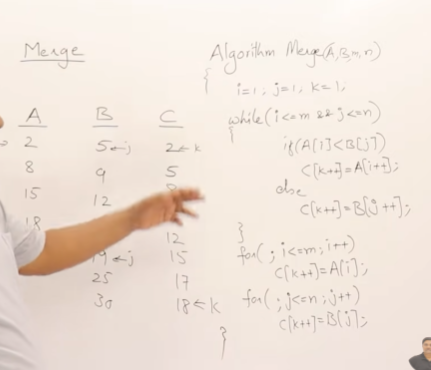 Merge
A B C
2 5 ← j 2 ← k
8 9 5
15 12
18
12
19 ← j 15
25 17
30 18 ← k
Algorithm Merge(A,B,m,n)
{
i=1; j=1; k=1;
while(i<=m && j<=n)
{
if(A[i]<B[j])
C[k++]=A[i++];
else
C[k++]=B[j++];
}
for( ; i<=m; i++)
C[k++]=A[i];
for( ; j<=n; j++)
C[k++]=B[j];
}